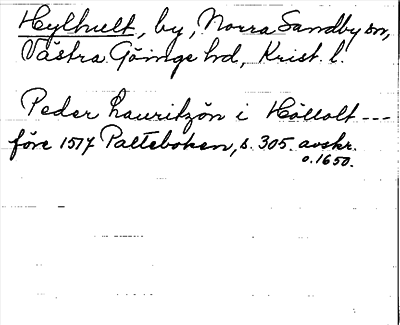 Hylhult, by, Norra Sandby sn,
Västra Göinge hd, Krist. l.
Peder Lauritzön i Höllolt ---
före 1517 Palteboken, s. 305. avskr.
o. 1650.